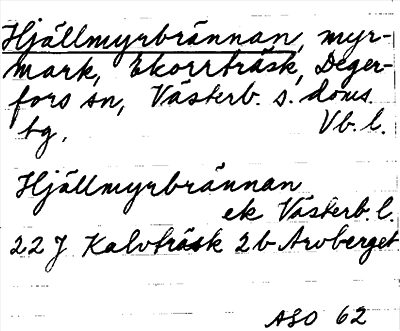 Hjällmyrbrännan, myr-
mark, Ekorrträsk, Deger-
fors sn, Västerb. s. doms.
bg, Vb. l.
Hjällmyrbrännan
ek Västerb. l.
22 J Kalvträsk 2b Arvberget
ASO 62